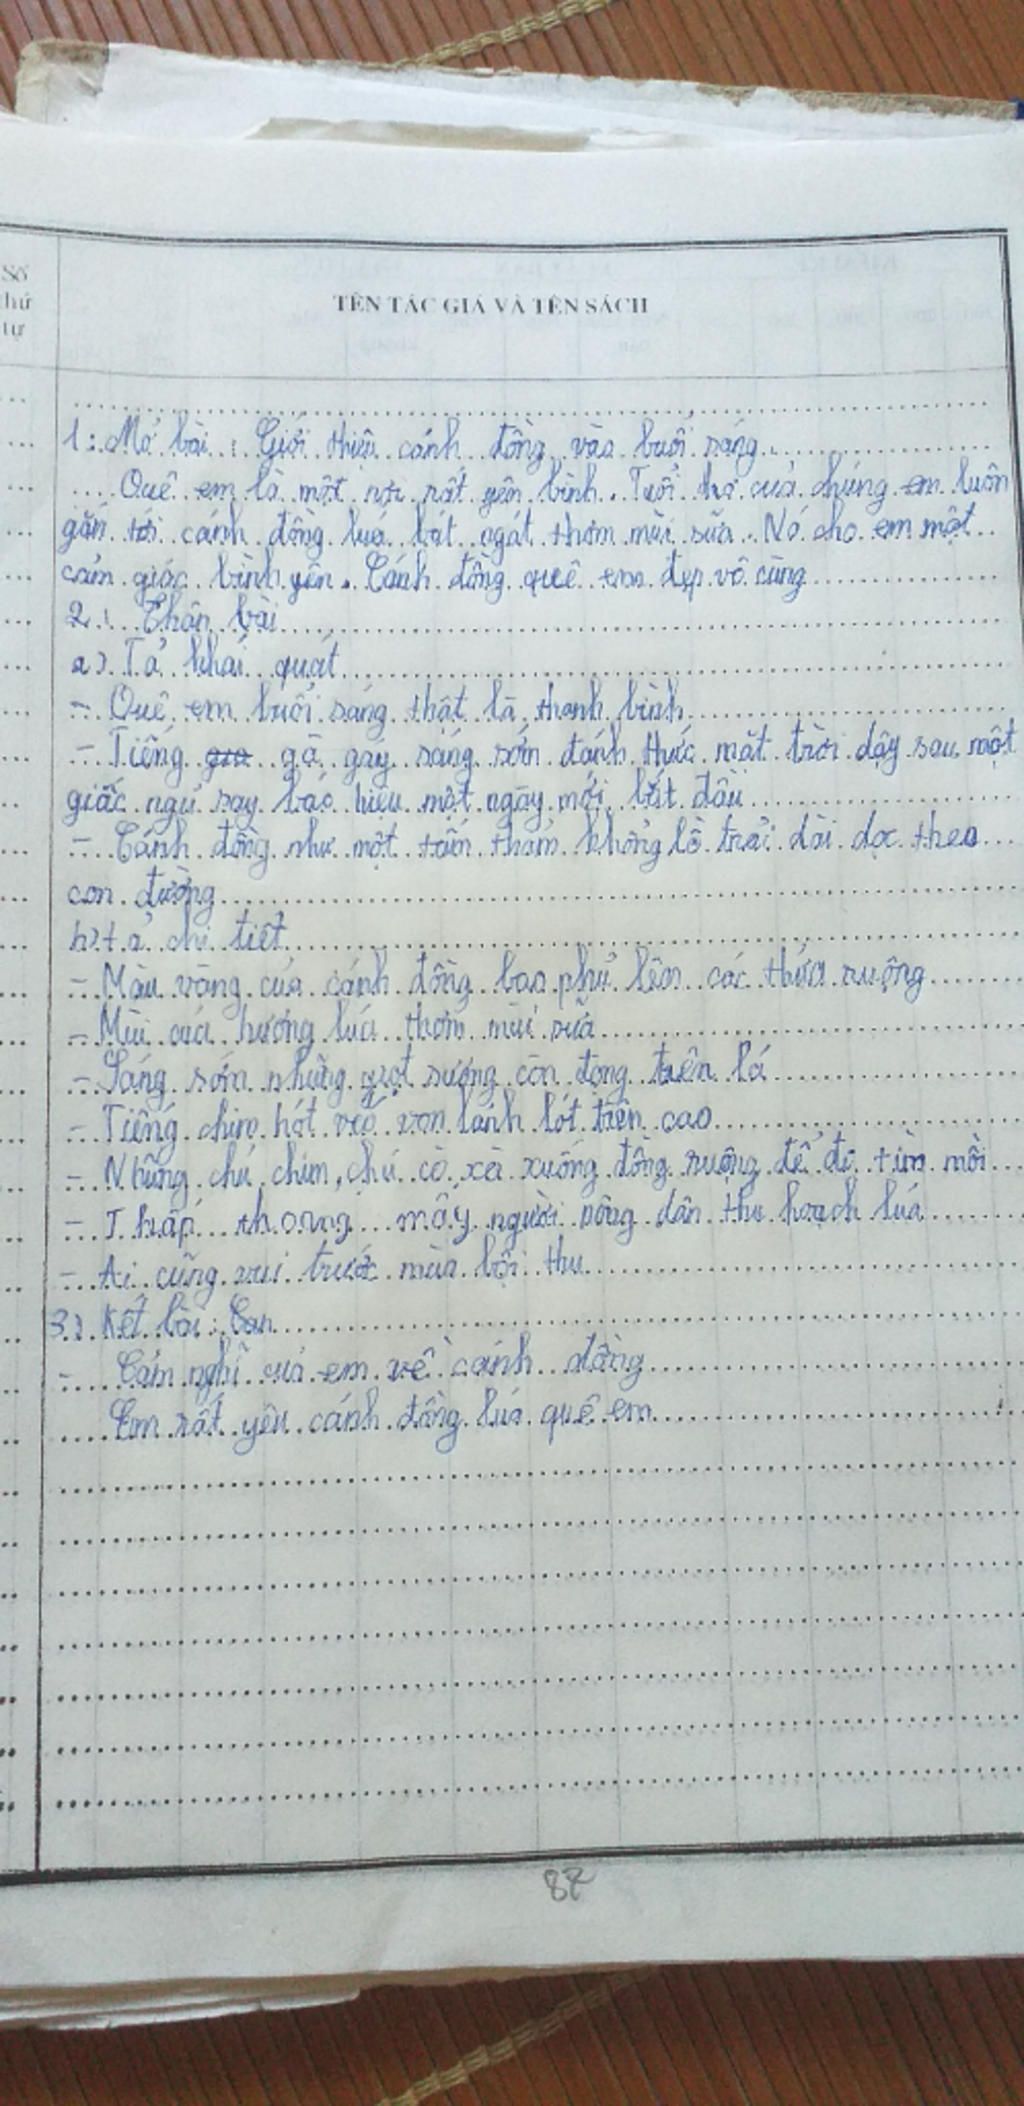 Số
thứ
tự
TÊN TÁC GIẢ VÀ TÊN SÁCH
1: Mở bài : Giới thiệu cánh đồng vào buổi sáng
Quê em là một nơi rất yên bình. Tuổi thơ của chúng em luôn
gắn tới cánh đồng lúa bát ngát thơm mùi sữa. Nó cho em một
cảm giác bình yên. Cánh đồng quê em đẹp vô cùng
2: Thân bài
a). Tả khái quát
- Quê em buổi sáng thật là thanh bình
- Tiếng gà gáy sáng sớm đánh thức mặt trời dậy sau một
giấc ngủ say báo hiệu một ngày mới bắt đầu
- Cánh đồng như một tấm thảm khổng lồ trải dài dọc theo
con đường
b) tả chi tiết
- Màu vàng của cánh đồng bao phủ lên các thửa ruộng
- Mùi của hương lúa thơm mùi sữa
- Sáng sớm những giọt sương còn đọng trên lá
- Tiếng chim hót véo von lảnh lót trên cao
- Những chú chim, chú cò xà xuống đồng ruộng để đi tìm mồi
- Thấp thoáng mấy người nông dân thu hoạch lúa
- Ai cũng vui trước mùa bội thu
3). Kết bài :
- Cảm nghĩ của em về cánh đồng
Em rất yêu cánh đồng lúa quê em
87